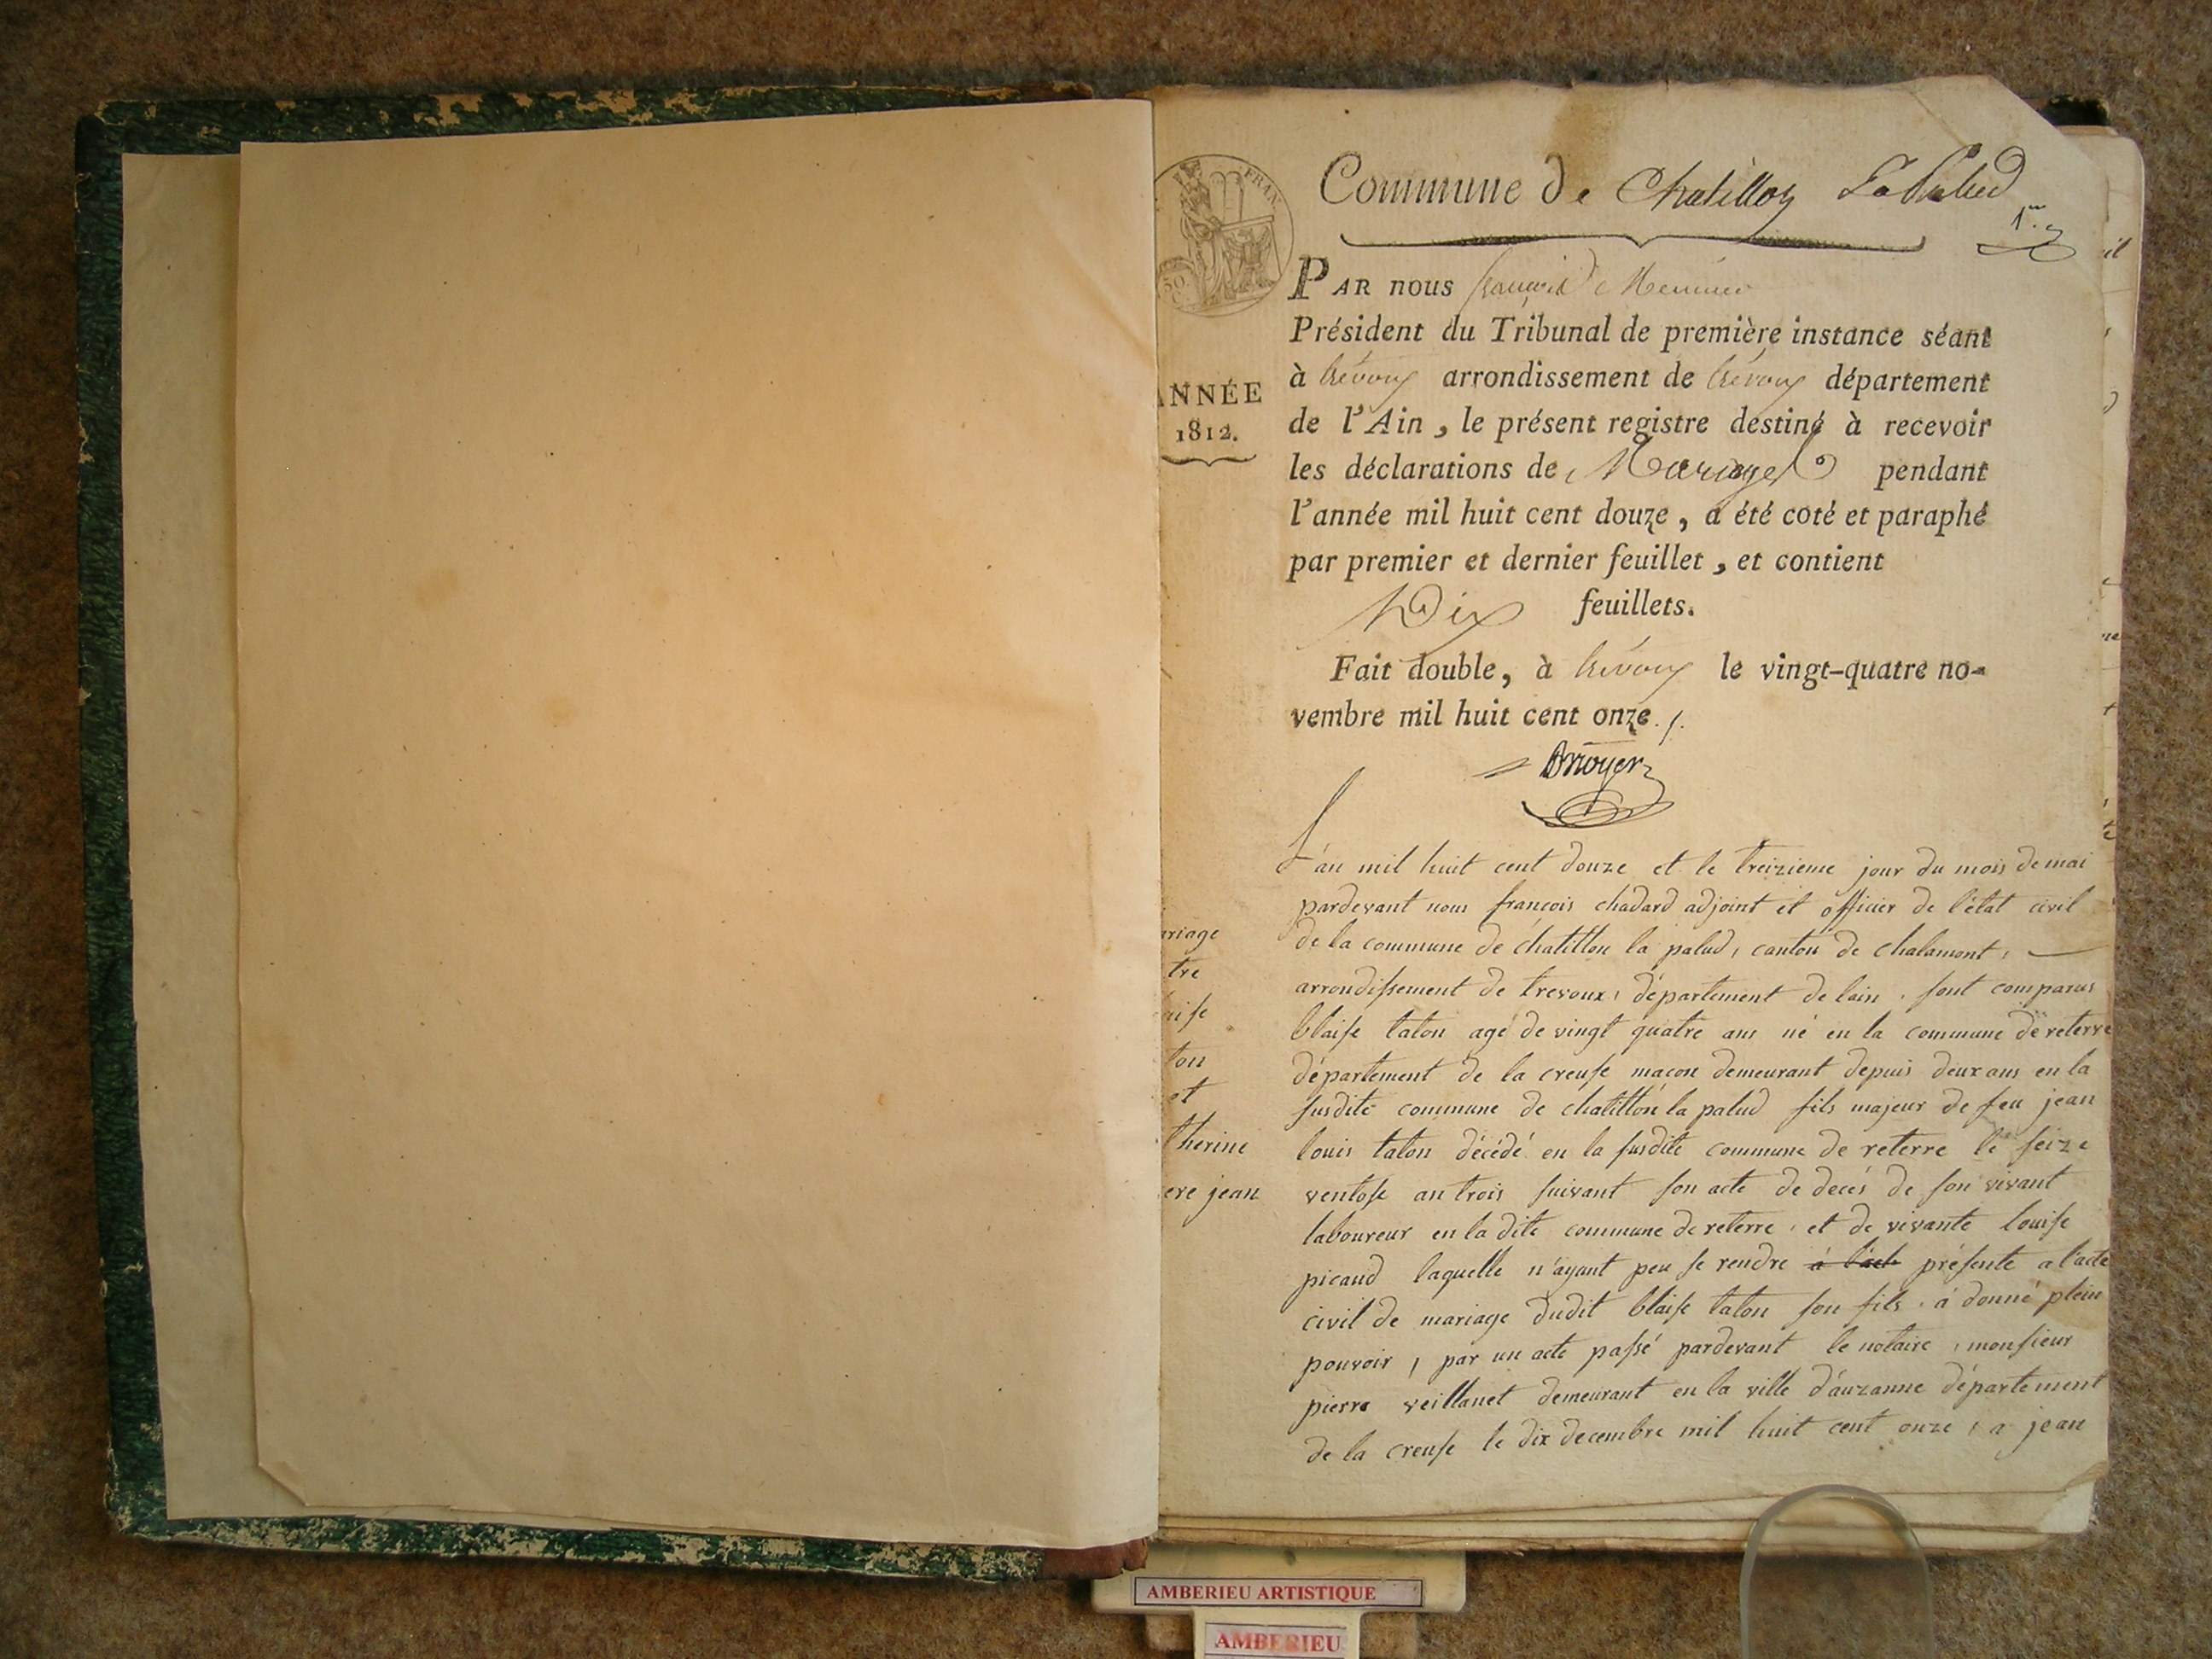 Commune de Chatillon La Palud
1er
FRAN
50
C.
PAR nous françois
Président du Tribunal de première instance séant
à trévoux arrondissement de trévoux département
ANNÉE
1812.
de l'Ain, le présent registre destiné à recevoir
les déclarations de Mariages pendant
l'année mil huit cent douze, a été coté et paraphé
par premier et dernier feuillet, et contient
Dix feuillets.
Fait double, à trévoux le vingt-quatre no-
vembre mil huit cent onze ./.
L'an mil huit cent douze et le treizieme jour du mois de mai
pardevant nous francois chadard adjoint et officier de l'état civil
de la commune de chatillon la palud, canton de chalamont,
arrondissement de trevoux, département de lain, sont comparus
blaise talon agé de vingt quatre ans né en la commune de reterre
département de la creuse macon demeurant depuis deux ans en la
susdite commune de chatillon la palud fils majeur de feu jean
louis talon décédé en la susdite commune de reterre le seize
ventose an trois suivant son acte de decés de son vivant
laboureur en la dite commune de reterre, et de vivante louise
picaud laquelle n'ayant peu se rendre à l'acte présente a l'acte
civil de mariage dudit blaise talon son fils, a donné plein
pouvoir, par un acte passé pardevant le notaire, monsieur
pierre veillanet demeurant en la ville d'auzanne département
de la creuse le dix decembre mil huit cent onze, a jean
ariage
tre
aise
ton
et
therine
ere jean
AMBERIEU ARTISTIQUE
AMBERIEU